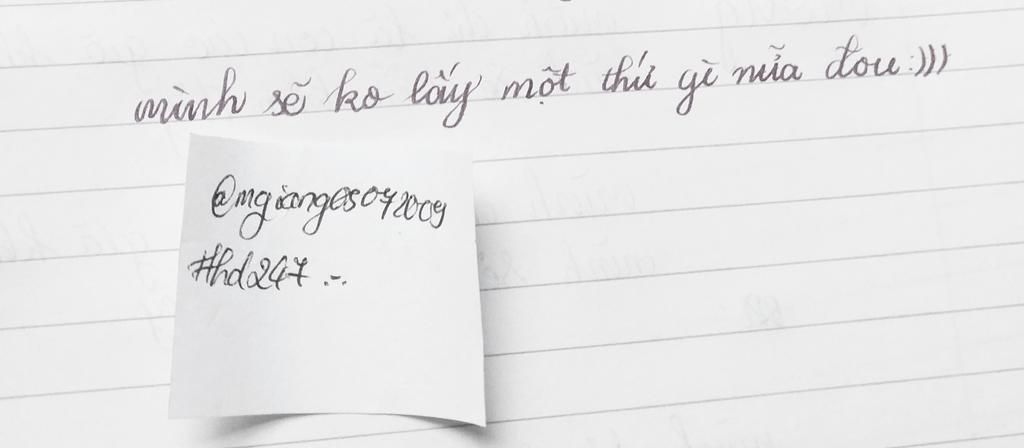 mình sẽ ko lấy một thứ gì nữa đou:)))
@mgianges072009
#hd247 .-.